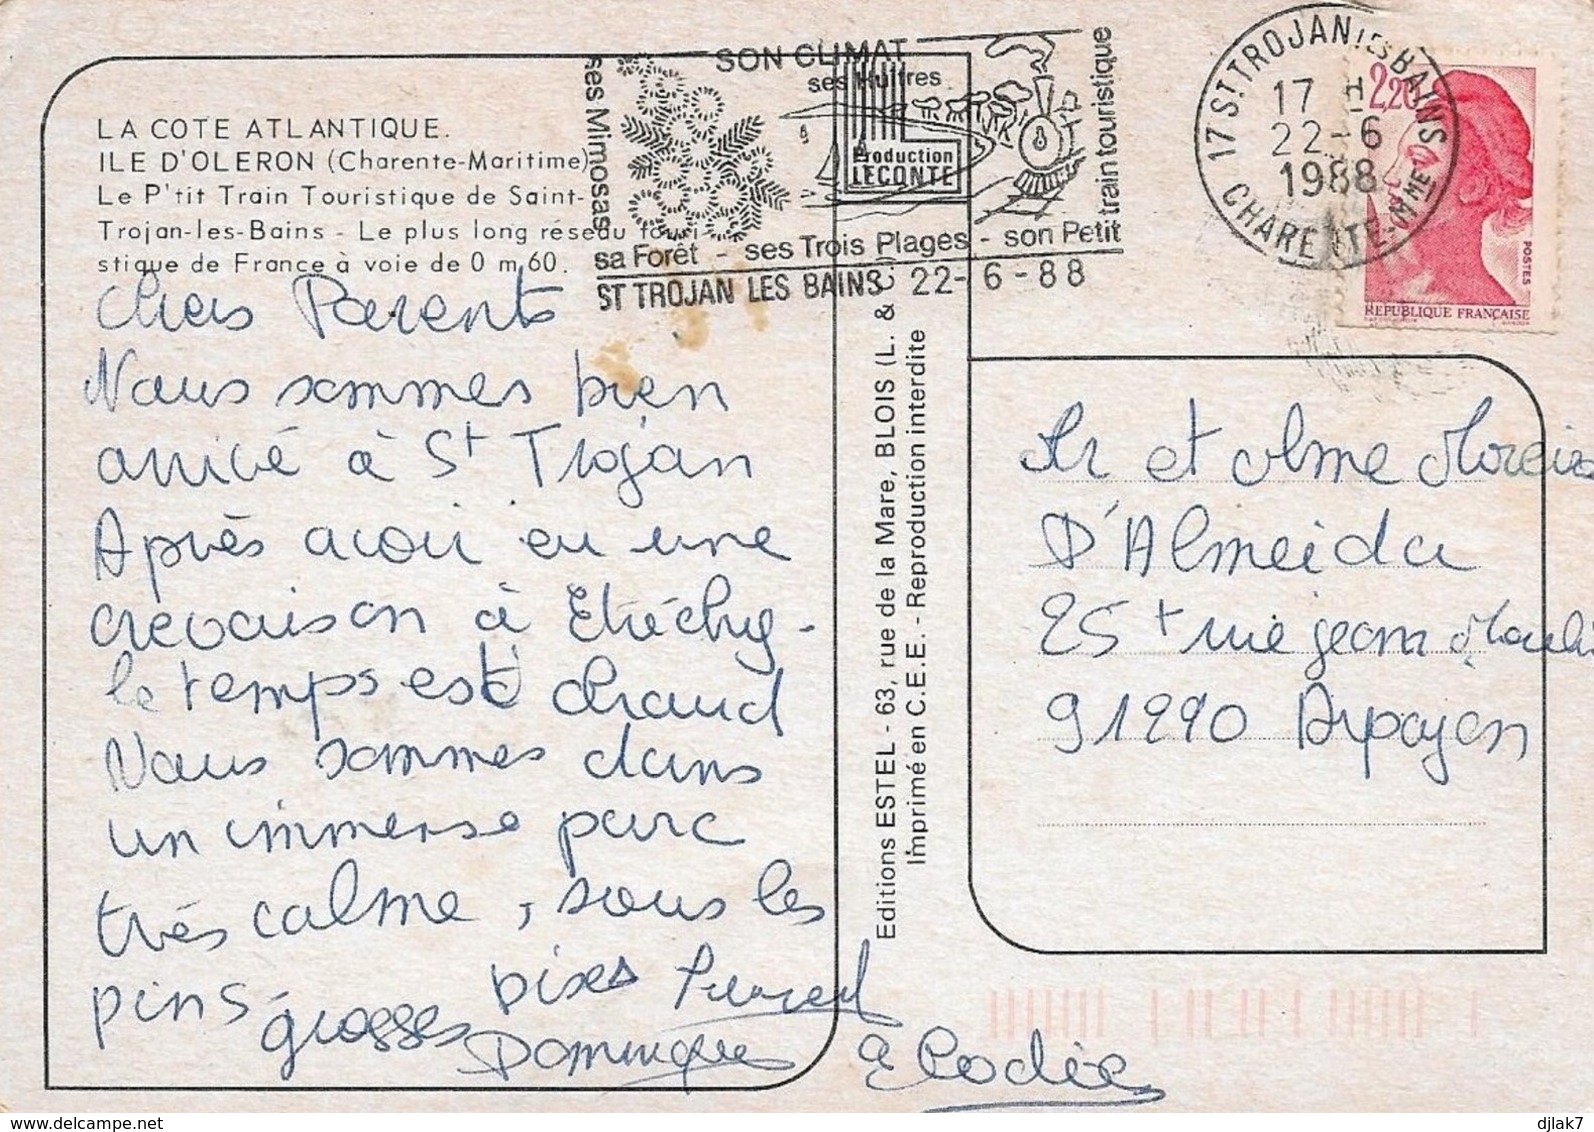 LA COTE ATLANTIQUE.
ILE D'OLERON (Charente-Maritime)
Le P'tit Train Touristique de Saint-
Trojan-les-Bains - Le plus long réseau touri-
stique de France à voie de 0 m 60.
SON CLIMAT
ses Huîtres
ses Mimosas
train touristique
sa Forêt - ses Trois Plages - son Petit
ST TROJAN LES BAINS 22-6-88
Production
LECONTE
17 ST TROJAN LES BAINS
17 H
22-6
1988
CHARENTE-MME
2,20
POSTES
REPUBLIQUE FRANÇAISE
Chers Parents
Nous sommes bien
arrivé à St Trojan
Après avoir eu une
crevaison à Etréchy-
le temps est chaud
Nous sommes dans
un immense parc
très calme, sous les
pins
grosses bises
Dominique
& Elodie
Editions ESTEL - 63, rue de la Mare, BLOIS (L. & C.)
Imprimé en C.E.E. - Reproduction interdite
Mr et Mme Moreira
D'Almeida
25 + rue jean Moulin
91290 Arpajon
djlak7